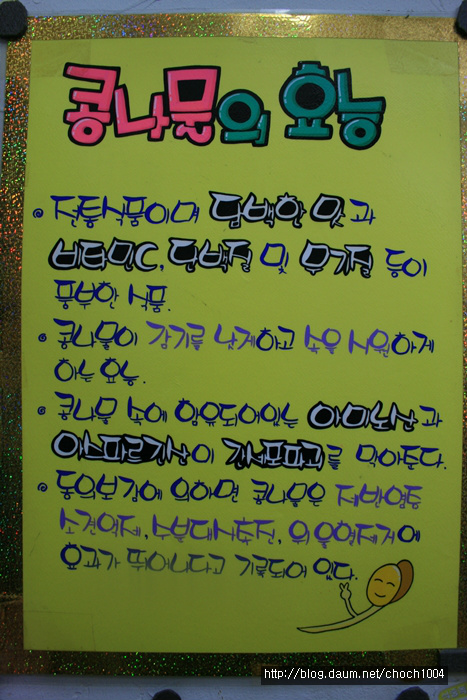 콩나물의 효능
전통식품이며 담백한 맛과
비타민C, 단백질 및 무기질 등이
풍부한 식품.
콩나물이 감기를 낫게하고 속을 시원하게
하는 효능.
콩나물 속에 함유되어있는 아미노산과
아스파르긴산이 간세포파괴를 막아준다.
동의보감에 의하면 콩나물은 제반염증
소견억제, 수분대사촉진, 위 울열제거에
효과가 뛰어나다고 기록되어 있다.
http://blog.daum.net/choch1004